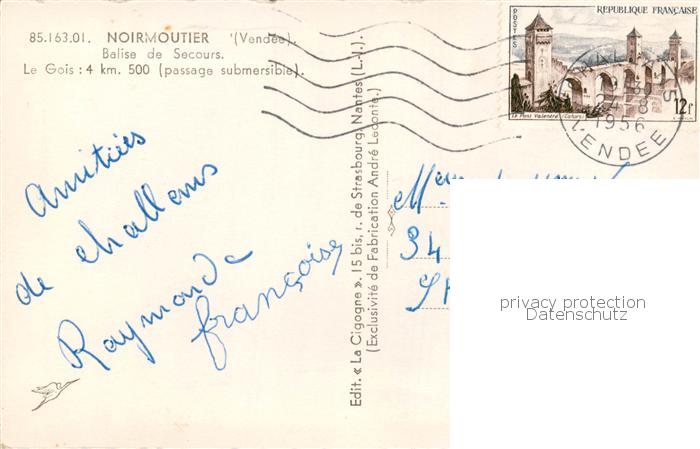 85.163.01. NOIRMOUTIER (Vendée).
Balise de Secours.
Le Gois : 4 km. 500 (passage submersible).
Amitiés
de challans
Raymonde
françoise
Edit. « La Cigogne ». 15 bis, r. de Strasbourg, Nantes (L.-I.).
(Exclusivité de Fabrication André Leconte.)
REPUBLIQUE FRANÇAISE
POSTES
12f
Le Pont Valentré (Cahors)
24-8
1956
VENDEE
34
privacy protection
Datenschutz